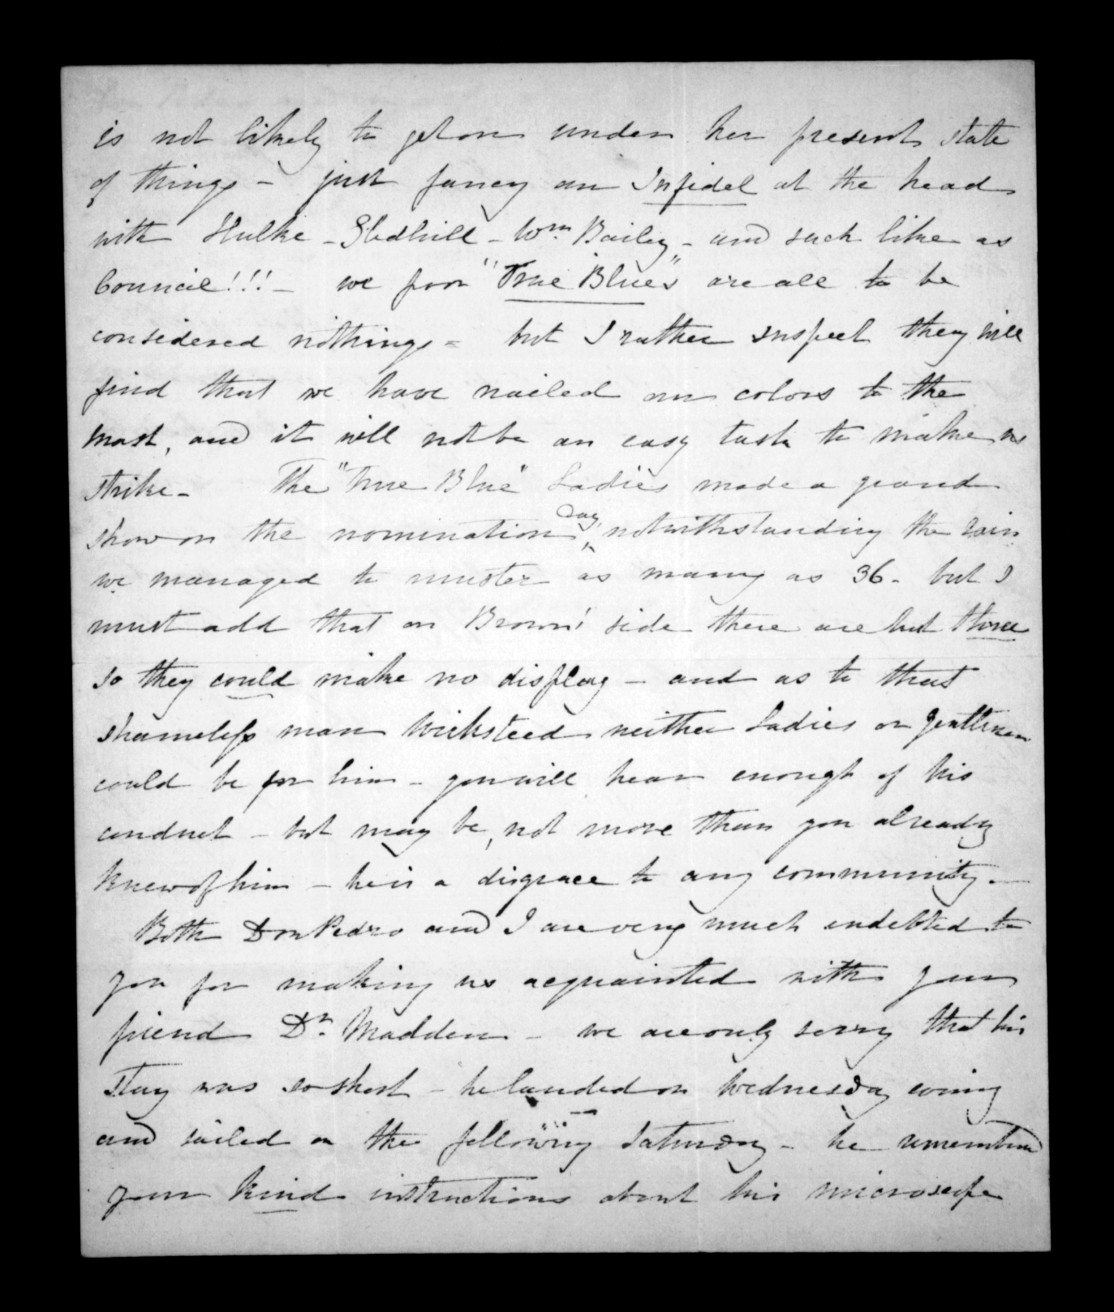 is not likely to get on under her present state
of things - just fancy an Infidel at the head
with Hulke - Gledhill - Wm Bailey - and such like as
Council!!! - we poor "True Blues" are all to be
considered nothings - but I rather suspect they will
find that we have nailed our colors to the
mast, and it will not be an easy task to make us
strike - The "True Blue" Ladies made a grand
show on the nomination Day, notwithstanding the rain
we managed to muster as many as 36 - but I
must add that on Brown's side there are but three
so they could make no display - and as to that
shameless man Wicksteed neither Ladies or gentlemen
could be for him - you will hear enough of his
conduct - but may be, not more than you already
knew of him - he is a disgrace to any community -
Both Don Pedro and I are very much indebted to
you for making us acquainted with your
friend Dr. Madden - we are only sorry that his
stay was so short - he landed on Wednesday evening
and sailed on the following Saturday - he remembered
your kind instructions about his microscope